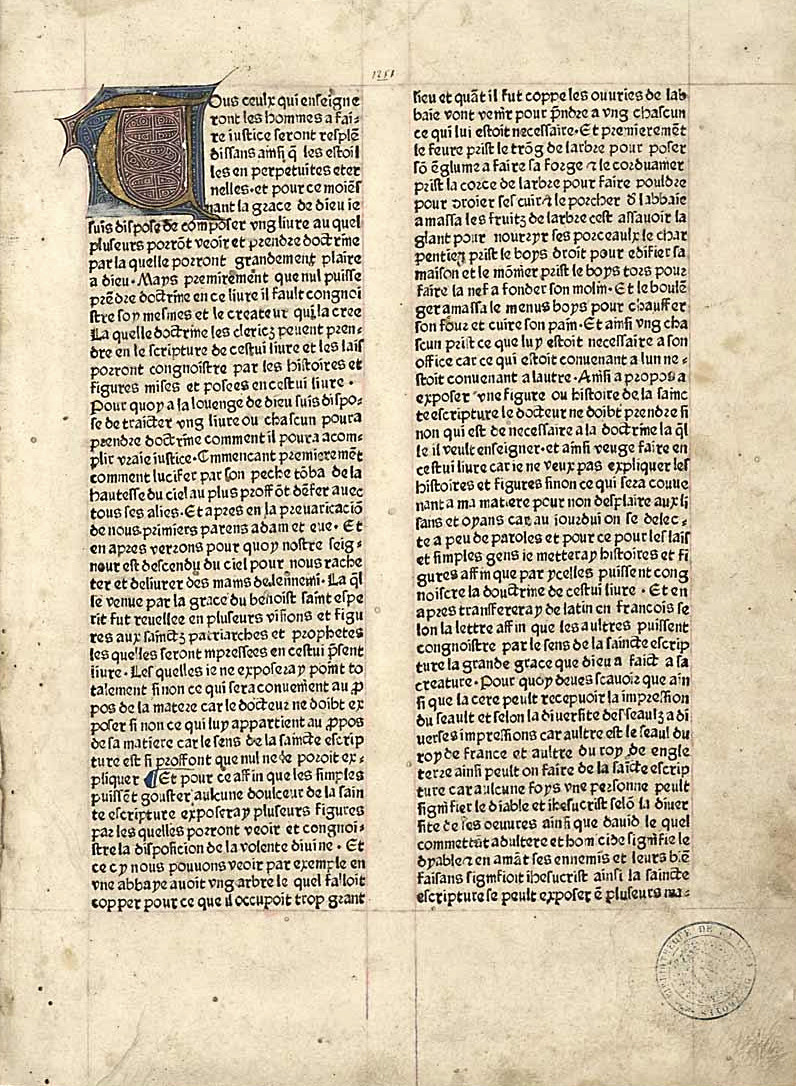 1251
Tous ceulx qui enseigne
ront les hommes a fai⸗
re iustice seront resplē
dissans ainsi q̄ les estoil
les en perpetuites eter
nelles·et pour ce moiēs
nant la grace de dieu ie
suis dispose de composer vng liure au quel
plusieurs porrōt veoir et prendre doctrine
par la quelle porront grandement plaire
a dieu·Mays premirēmēt que nul puisse
prēdre doctrine en ce liure il fault congnoi
stre soy mesmes et le createur qui la cree
La quelle doctrine les clericz peuent pren⸗
dre en le scripture de cestui liure et les lais
porront congnoistre par les histoires et
figures mises et posees en cestui liure·
Pour quoy a la louenge de dieu suis dispo⸗
se de traicter vng liure ou chascun poura
prendre doctrine comment il poura acom⸗
plir vraie iustice·Cmmencant premieremēt
comment lucifer par son peche tōba de la
haultesse du ciel au plus proffōt dēfer auec
tous ses alies·Et apres en la preuaricaciō
de nous primiers parens adam et eue·Et
en apres verrons pour quoy nostre seig⸗
nour est descendu du ciel pour nous rache
ter et deliurer des mains de lennemi·La q̄l
se venue par la grace du benoist saint espe
rit fut reuellee en plusieurs visions et figu
res aux saīctz patriarches et prophetes
les quelles seront impressees en cestui p̄sent
liure·Les quelles ie ne exposeray point to
talement sinon ce qui sera conuenient au ꝓ
pos de la matere car le docteur ne doibt ex
poser si non ce qui luy appartient au ꝓpos
de sa matiere car le sens de la saincte escrip
ture est si proffont que nul ne le poroit ex⸗
pliquer ¶Et pour ce affin que les simples
puissēt gouster aukune doulceur de la sain
te escripture exposeray plusieurs figures
par les quelles porront veoir et congnoi⸗
stre la disposicion de la volente diuine·Et
ce cy nous pouuons veoir par exemple en
vne abbaye auoit vng arbre le quel falloit
copper pour ce que il occupoit trop grant
lieu et quāt il fut coppe les ouuries de lab
baie vont venir pour p̄ndre a vng chascun
ce qui lui estoit necessaire·Et premieremēt
le feure prist le trōg de larbre pour poser
sō ēglume a faire sa forge ⁊ le corduanier
prist la corce de larbre pour faire pouldre
pour droier ses cuir⁊ le porcher d̄ labbaie
amassa les fruitz de larbre cest assauoir la
glant pour nourryr ses porceaulx le char
pentier prist le boys droit pour edifier sa
maison et le mōnier prist le boys tors pour
faire la nef a fonder son molin·Et le boulē
ger amassa le menus boys pour chauffer
son four et cuire son pain·Et ainsi vng cha
scun prist ce que luy estoit necessaire a son
office car ce qui estoit conuenant a lun ne⸗
stoit conuenant a lautre·Ainsi a propos a
exposer vne figure ou histoire de la sainc
te escripture le docteur ne doibt prendre si
non qui est de necessaire a la doctrine la q̄l
le il veult enseigner·et ainsi veuge faire en
cestui liure car ie ne veux pas expliquer les
histoires et figures sinon ce qui sera couue
nant a ma matiere pour non desplaire aux li
sans et oyans car au iourdui on se delec⸗
te a peu de paroles et pour ce pour les lais
et simples gens ie metteray histoires et fi
gures affin que par ycelles puissent cong
noiscre la douctrine de cestui liure·Et en
apres transfereray de latin en francois se
lon la lettre affin que les aultres puissent
congnoistre par le sens de la saincte escrip
ture la grande grace que dieu a faict a sa
creature·Pour quoy deues scauoir que ain
si que la cere peult recepuoir la impression
du seault et selon la diuersite des seaulz a di
uerses impressions car aultre est le seaul du
roy de france et aultre du roy de engle
terre ainsi peult on faire de la saīcte escrip
ture car aulcune foys vne personne peult
signifier le diable et ihesucrist selō la diuer
site de ses oeuures ainsi que dauid le quel
commettāt adultere et homicide signifie le
dyable⁊ en amāt ses ennemis et leurs biē
faisans signifioit ihesucrist ainsi la saincte
escripture se peult exposer ē plusieurs ma⸗